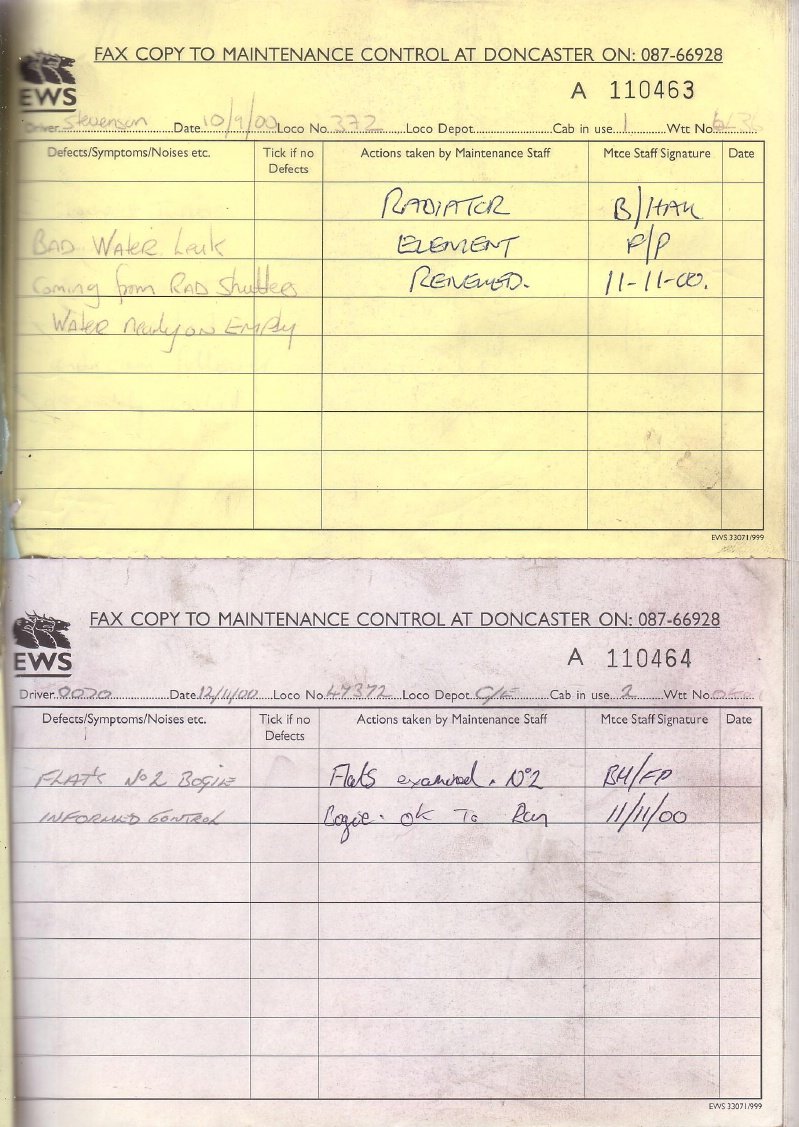 FAX COPY TO MAINTENANCE CONTROL AT DONCASTER ON: 087-66928
EWS
A 110463
Driver Stevenson Date 10/9/00 Loco No. 372 Loco Depot Cab in use 1 Wtt No.
Defects/Symptoms/Noises etc. Tick if no Defects Actions taken by Maintenance Staff Mtce Staff Signature Date
RADIATOR B/HAK
BAD WATER Leak ELEMENT F/P
Coming from RAD Shutters RENEWED. 11-11-00.
WATER nearly on EMPty
EWS 33071/999
FAX COPY TO MAINTENANCE CONTROL AT DONCASTER ON: 087-66928
EWS
A 110464
Driver Date 12/11/00 Loco No. 47372 Loco Depot C/E Cab in use 2 Wtt No.
Defects/Symptoms/Noises etc. Tick if no Defects Actions taken by Maintenance Staff Mtce Staff Signature Date
FLATS No2 BOGIE Flats examined. No2 BH/FP
INFORMED CONTROL Bogie. OK To Run 11/11/00
EWS 33071/999